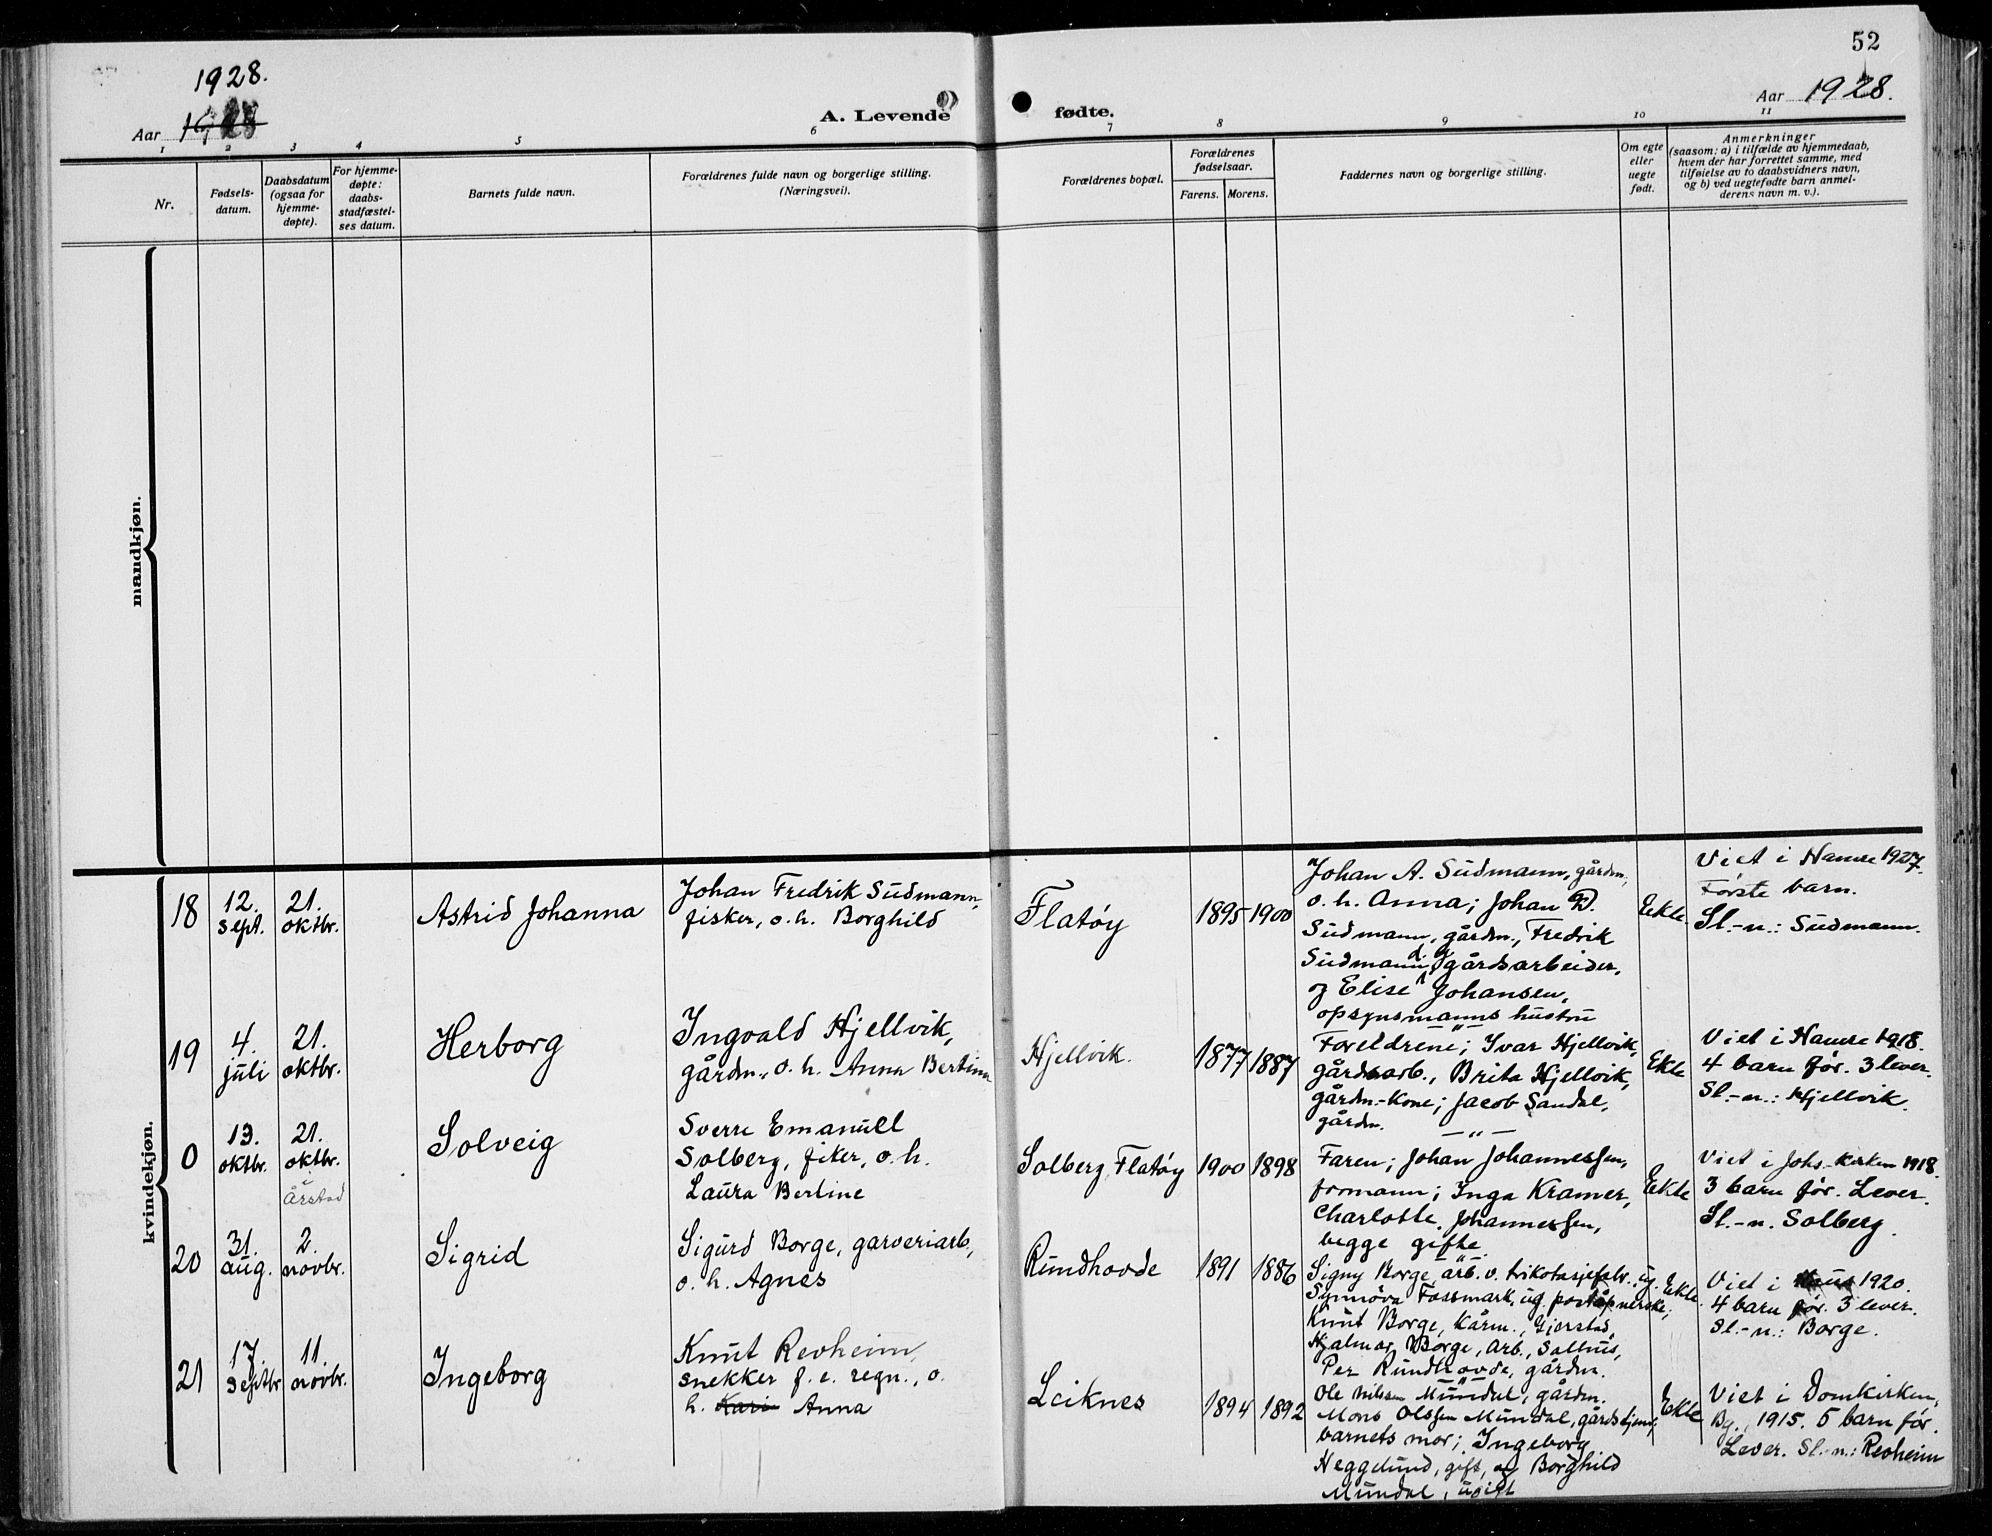 52
1928.
Aar 1928
A. Levende fødte.
Aar 1928.
1 2 3 4 5 6 7 8 9 10 11
Nr.
Fødsels-
datum.
Daabsdatum
(ogsaa for
hjemme-
døpte).
For hjemme-
døpte:
daabs-
stadfæstel-
ses datum.
Barnets fulde navn.
Forældrenes fulde navn og borgerlige stilling.
(Næringsvei).
Forældrenes bopæl.
Forældrenes
fødselsaar.
Farens. Morens.
Faddernes navn og borgerlige stilling.
Om egte
eller
uegte
født.
Anmerkninger
(saasom: a) i tilfælde av hjemmedaab,
hvem der har forrettet samme, med
tilføielse av to daabsvidners navn,
og b) ved uegtefødte barn anmel-
derens navn m. v.).
mandkjøn.
kvindekjøn.
18
12.
sept.
21.
oktbr.
Astrid Johanna
Johan Fredrik Sudmann,
fisker, o. h. Borghild
Flatøy
1895 1900
Johan A. Sudmann, gårdm,
o. h. Anna; Johan D.
Sudmann, gårdm., Fredrik
Sudmann, gårdsarbeider,
og Elise Johansen,
opsynsmanns hustru
Ekte.
Viet i Hamre 1927.
Første barn.
Sl.-n.: Sudmann.
19
4.
juli
21.
oktbr.
Herborg
Ingvald Hjellvik,
gårdm., o. h. Anna Bertina
Hjellvik.
1877 1887
Foreldrene; Ivar Hjellvik,
gårdsarb., Brita Hjellvik,
gårdm.-kone; Jacob Sandal,
gårdm.
Ekte
Viet i Hamre 1918.
4 barn før. 3 lever.
Sl.-n.: Hjellvik.
0
13.
oktbr.
21.
oktbr.
i
Årstad
Solveig
Sverre Emanuel
Solberg, fiker, o. h.
Laura Berline
Solberg, Flatøy
1900 1898
Faren; Johan Johannessen,
formann; Inga Kramer,
Charlotte Johannessen,
begge gifte.
Ekte
Viet i Johs.-kirken 1918.
3 barn før. Lever.
Sl.-n. Solberg.
20
31.
aug.
2.
novbr.
Sigrid
Sigurd Borge, garveriarb,
o. h. Agnes
Rundhovde
1891 1886
Signy Borge, arb. v. trikotasjefabr., ug.
Synnöva Fossmark, ug. poståpnerske;
Knut Borge, kårm., Gjerstad,
Hjalmar Borge, Arb., Salhus,
Per Rundhovde, gårdm.
Ekte.
Viet i Haus 1920.
4 barn før. 3 lever.
Sl.-n.: Borge.
21
17.
septbr
11.
novbr.
Ingeborg
Knut Revheim,
snekker f. e. regn., o.
h. Kari Anna
Leiknes
1894 1892
Ole Nilsen Mundal, gårdm.
Mons Olssen Mundal, gårdstjener;
barnets mor; Ingeborg
Heggelund, gift, og Borghild
Mundal, ugift
Ekte
Viet i Domkirken,
Bg., 1915. 5 barn før.
Lever. Sl.-n.: Revheim